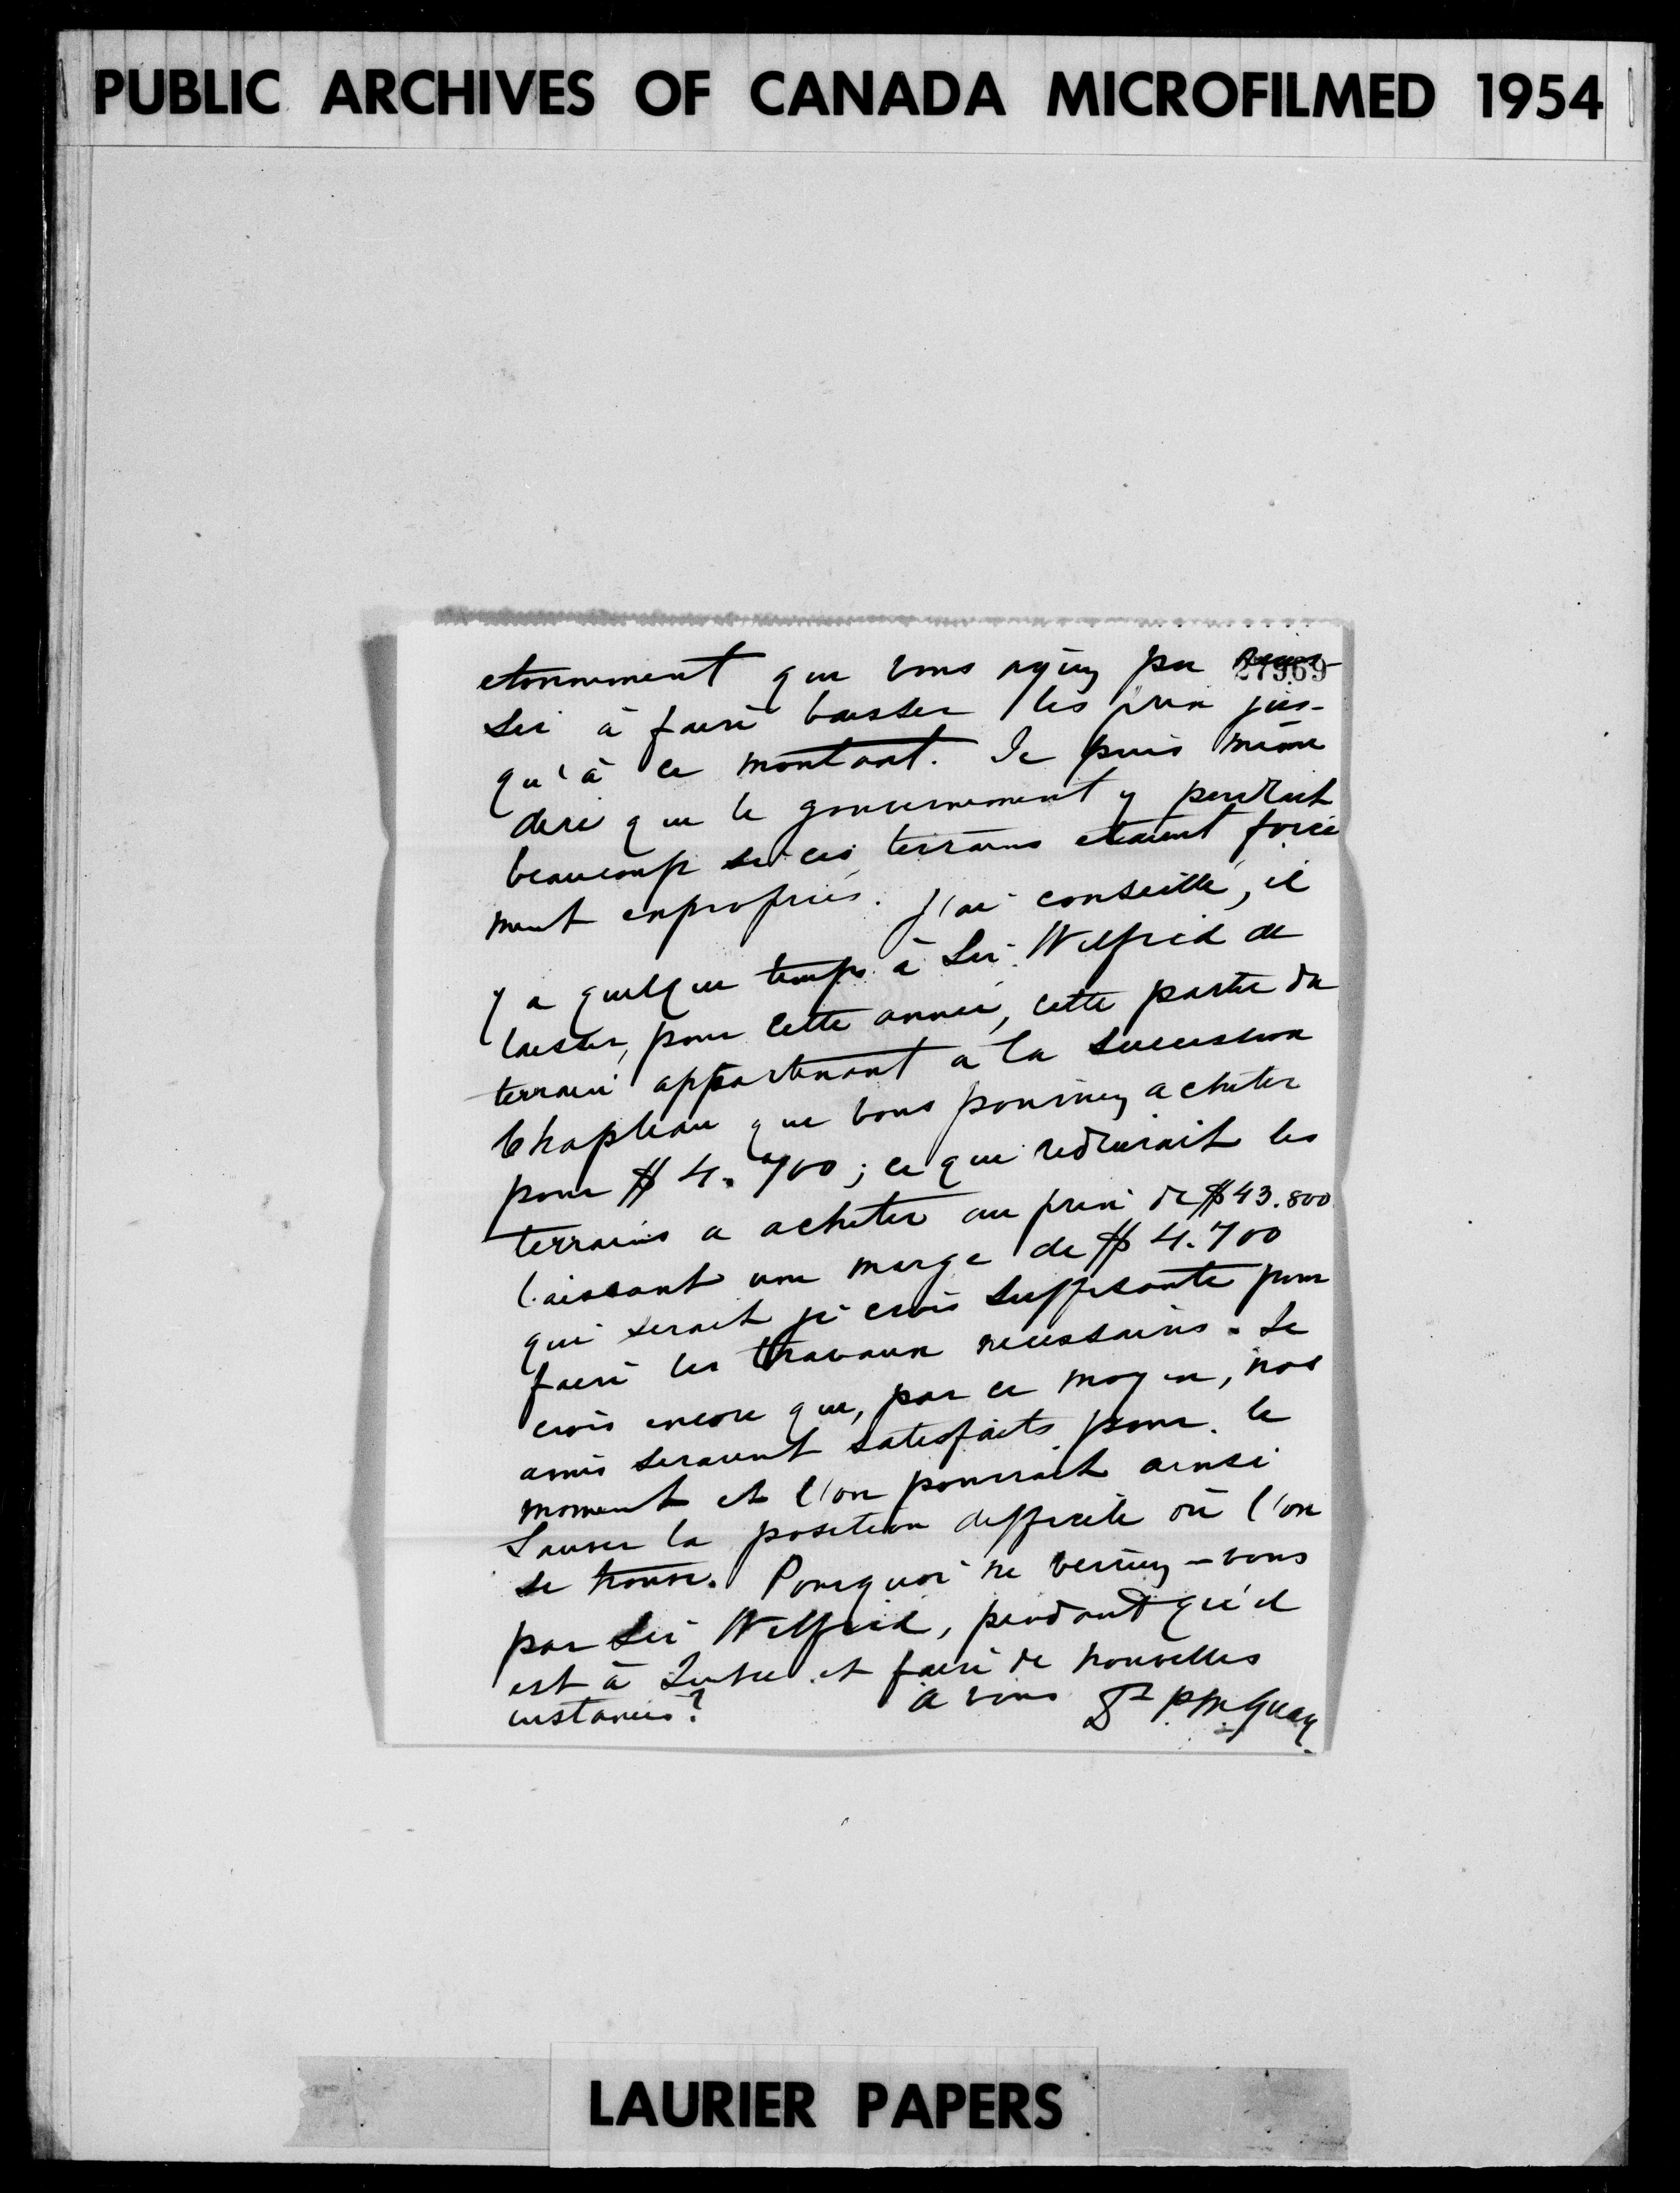 PUBLIC ARCHIVES OF CANADA MICROFILMED 1954
27969
etonnement que vous ayiez pu reus-
sir à faire baisser les prix jus-
qu'à ce montant. Je puis même
dire que le gouvernement y perdrait
beaucoup si ces terrains etaient forcé
ment expropriés. J'ai conseillé, il
y a quelque temps à Sir Wilfrid de
laisser, pour cette année, cette partie du
terrain appartenant a la succession
Chapleau que vous pourriez acheter
pour $ 4.700; ce que reduirait les
terrains a acheter au prix de $43.800
laissant une marge de $ 4.700
qui serait je crois suffisante pour
faire les travaux necessaires. Je
crois encore que, par ce moyen, nos
amis seraient satisfaits pour le
moment et l'on pourrait ainsi
sauver la position difficile où l'on
se trouve. Pourquoi ne verriez-vous
pas Sir Wilfrid, pendant qu'il
est à et faire de nouvelles
instances?
a vous Dr P.M. Guay
LAURIER PAPERS